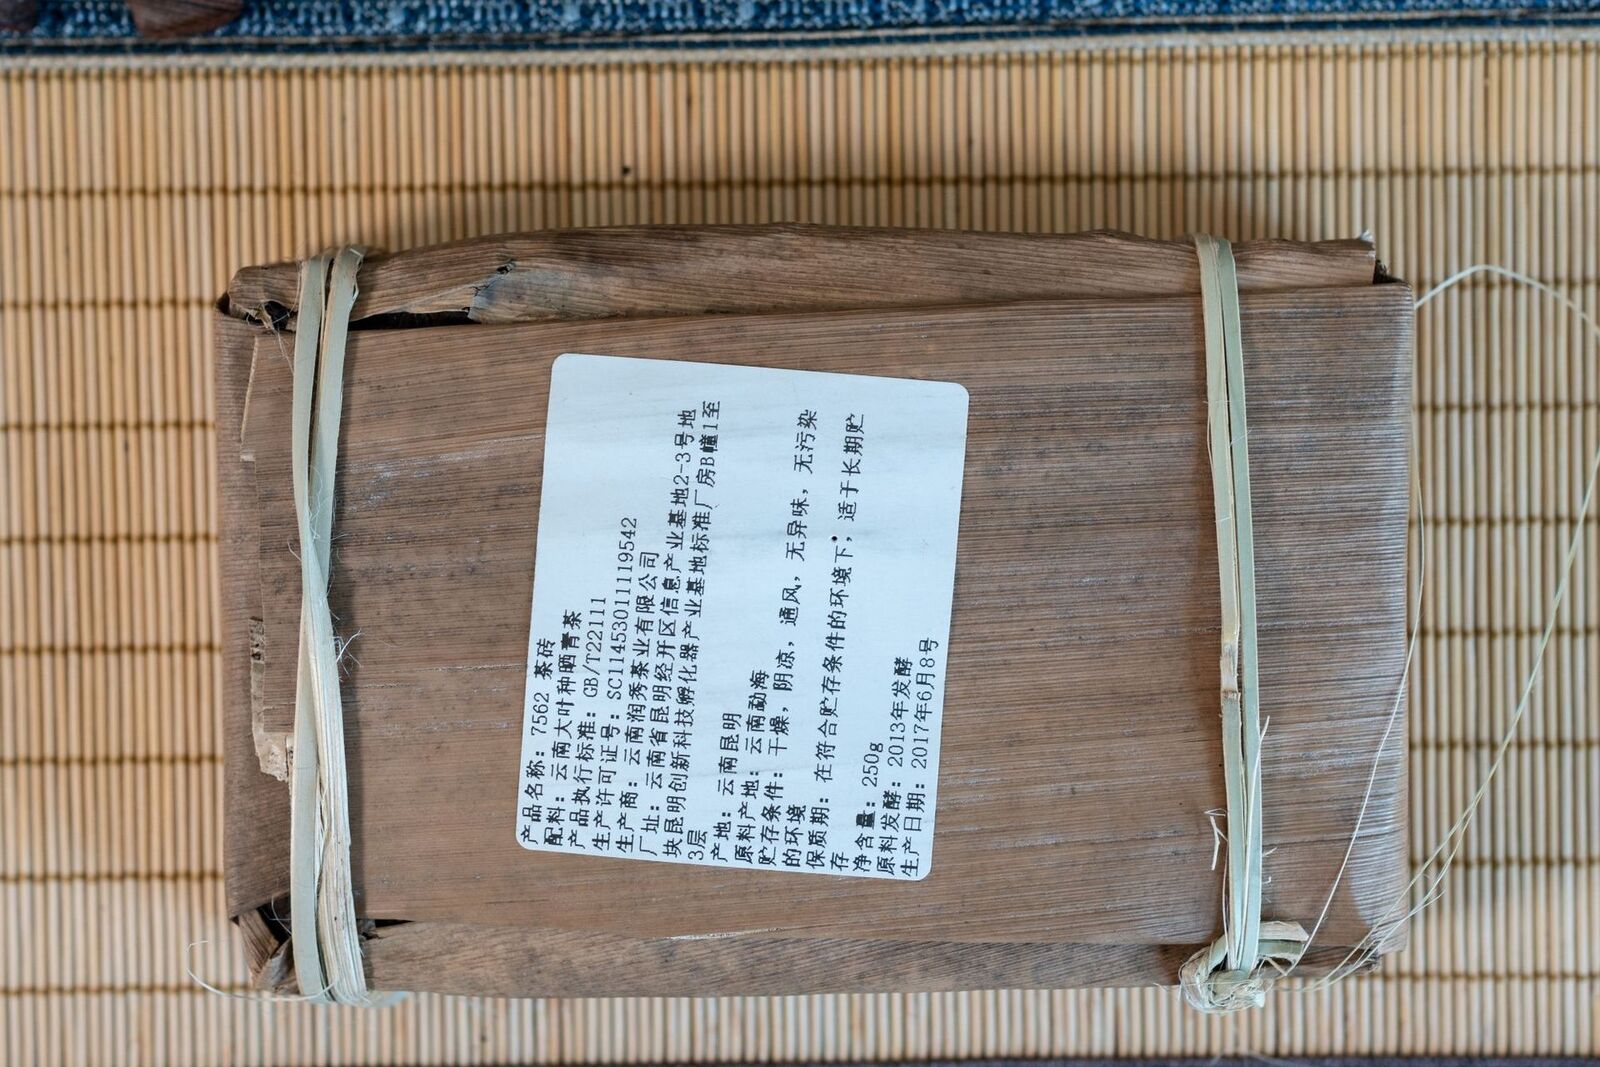 产品名称：7562 茶砖
配料：云南大叶种晒青茶
产品执行标准：GB/T22111
生产许可证号：SC11453011119542
生产商：云南润秀茶业有限公司
厂址：云南省昆明经开区信息产业基地2-3号地
块昆明创新科技孵化器产业基地标准厂房B幢1至
3层
产地：云南昆明
原料产地：云南勐海
贮存条件：干燥，阴凉，通风，无异味，无污染
的环境
保质期：在符合贮存条件的环境下，适于长期贮
存
净含量：250g
原料发酵：2013年发酵
生产日期：2017年6月8号